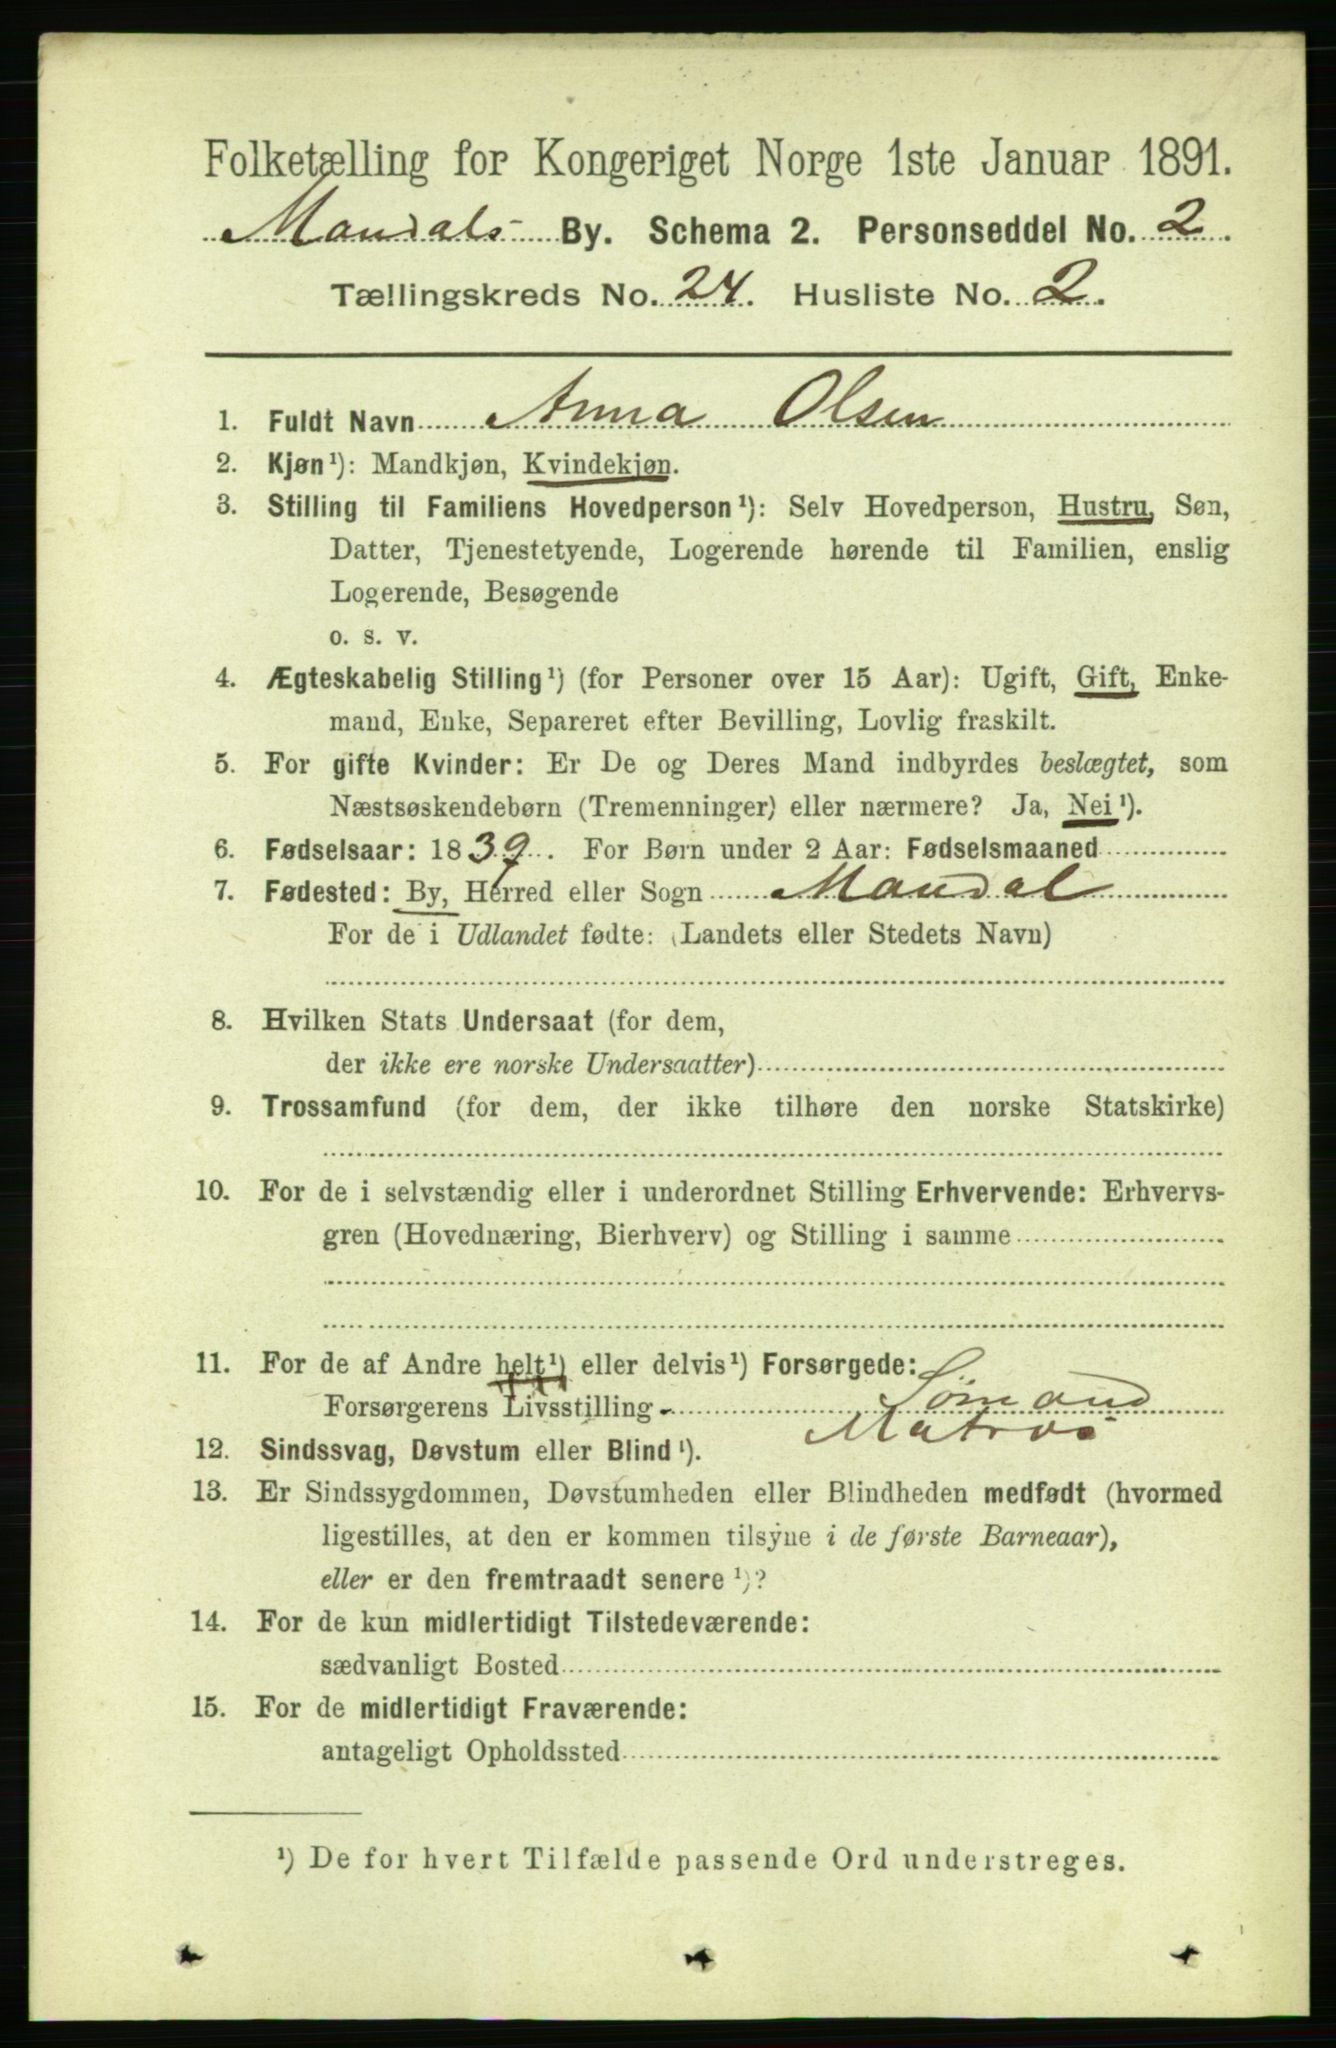 Folketælling for Kongeriget Norge 1ste Januar 1891.
Mandals By. Schema 2. Personseddel No. 2.
Tællingskreds No. 24. Husliste No. 2.
1. Fuldt Navn Anna Olsen
2. Kjøn¹): Mandkjøn, Kvindekjøn.
3. Stilling til Familiens Hovedperson¹): Selv Hovedperson, Hustru, Søn,
Datter, Tjenestetyende, Logerende hørende til Familien, enslig
Logerende, Besøgende
o. s. v.
4. Ægteskabelig Stilling¹) (for Personer over 15 Aar): Ugift, Gift, Enke-
mand, Enke, Separeret efter Bevilling, Lovlig fraskilt.
5. For gifte Kvinder: Er De og Deres Mand indbyrdes beslægtet, som
Næstsøskendebørn (Tremenninger) eller nærmere? Ja, Nei¹).
6. Fødselsaar: 1839. For Børn under 2 Aar: Fødselsmaaned
7. Fødested: By, Herred eller Sogn Mandal
For de i Udlandet fødte: (Landets eller Stedets Navn)
8. Hvilken Stats Undersaat (for dem,
der ikke ere norske Undersaatter)
9. Trossamfund (for dem, der ikke tilhøre den norske Statskirke)
10. For de i selvstændig eller i underordnet Stilling Erhvervende: Erhvervs-
gren (Hovednæring, Bierhverv) og Stilling i samme
11. For de af Andre helt¹) eller delvis¹) Forsørgede:
Forsørgerens Livsstilling Sømand
Matros
12. Sindssvag, Døvstum eller Blind¹).
13. Er Sindssygdommen, Døvstumheden eller Blindheden medfødt (hvormed
ligestilles, at den er kommen tilsyne i de første Barneaar),
eller er den fremtraadt senere¹)?
14. For de kun midlertidigt Tilstedeværende:
sædvanligt Bosted
15. For de midlertidigt Fraværende:
antageligt Opholdssted
¹) De for hvert Tilfælde passende Ord understreges.